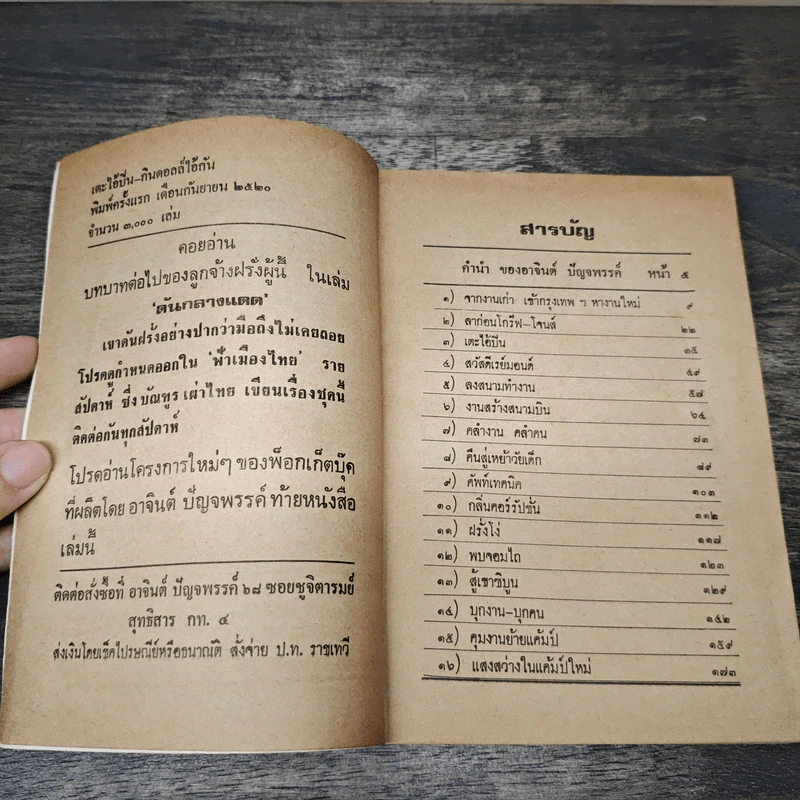 เตะไอ้ปืน-กินดอลล์ไอ้กัน
พิมพ์ครั้งแรก เดือนกันยายน ๒๕๒๐
จำนวน ๓,๐๐๐ เล่ม
คอยอ่าน
บทบาทต่อไปของลูกจ้างฝรั่งผู้นี้ ในเล่ม
'ดันกลางแดด'
เขาดันฝรั่งอย่างปากว่ามือถึงไม่เคยถอย
โปรดดูกำหนดออกใน 'ฟ้าเมืองไทย' ราย
สัปดาห์ ซึ่ง บัณฑูร เผ่าไทย เขียนเรื่องชุดนี้
ติดต่อกันทุกสัปดาห์
โปรดอ่านโครงการใหม่ๆ ของพ็อกเก็ตบุ๊ค
ที่ผลิตโดย อาจินต์ ปัญจพรรค์ ท้ายหนังสือ
เล่มนี้
ติดต่อสั่งซื้อที่ อาจินต์ ปัญจพรรค์ ๖๘ ซอยชูจิตารมย์
สุทธิสาร กท. ๔
ส่งเงินโดยเช็คไปรษณีย์หรือธนาณัติ สั่งจ่าย ป.ท. ราชเทวี
สารบัญ
คำนำ ของอาจินต์ ปัญจพรรค์ หน้า ๕
๑) จากงานเก่า เข้ากรุงเทพ ฯ หางานใหม่ ๙
๒) ลาก่อนโกร๊ฟ-โจนส์ ๒๒
๓) เตะไอ้ปืน ๓๕
๔) สวัสดีเรย์มอนด์ ๔๙
๕) ลงสนามทำงาน ๕๗
๖) งานสร้างสนามบิน ๖๔
๗) คลำงาน คลำคน ๗๓
๘) คืนสู่เหย้าวัยเด็ก ๘๙
๙) ศัพท์เทคนิค ๑๐๓
๑๐) กลิ่นคอร์รัปชั่น ๑๑๒
๑๑) ฝรั่งโง่ ๑๑๗
๑๒) พบจอมไถ ๑๒๓
๑๓) สู้เขาชิบูน ๑๒๙
๑๔) บุกงาน-บุกคน ๑๔๒
๑๕) คุมงานย้ายแค้มป์ ๑๕๙
๑๖) แสงสว่างในแค้มป์ใหม่ ๑๗๓